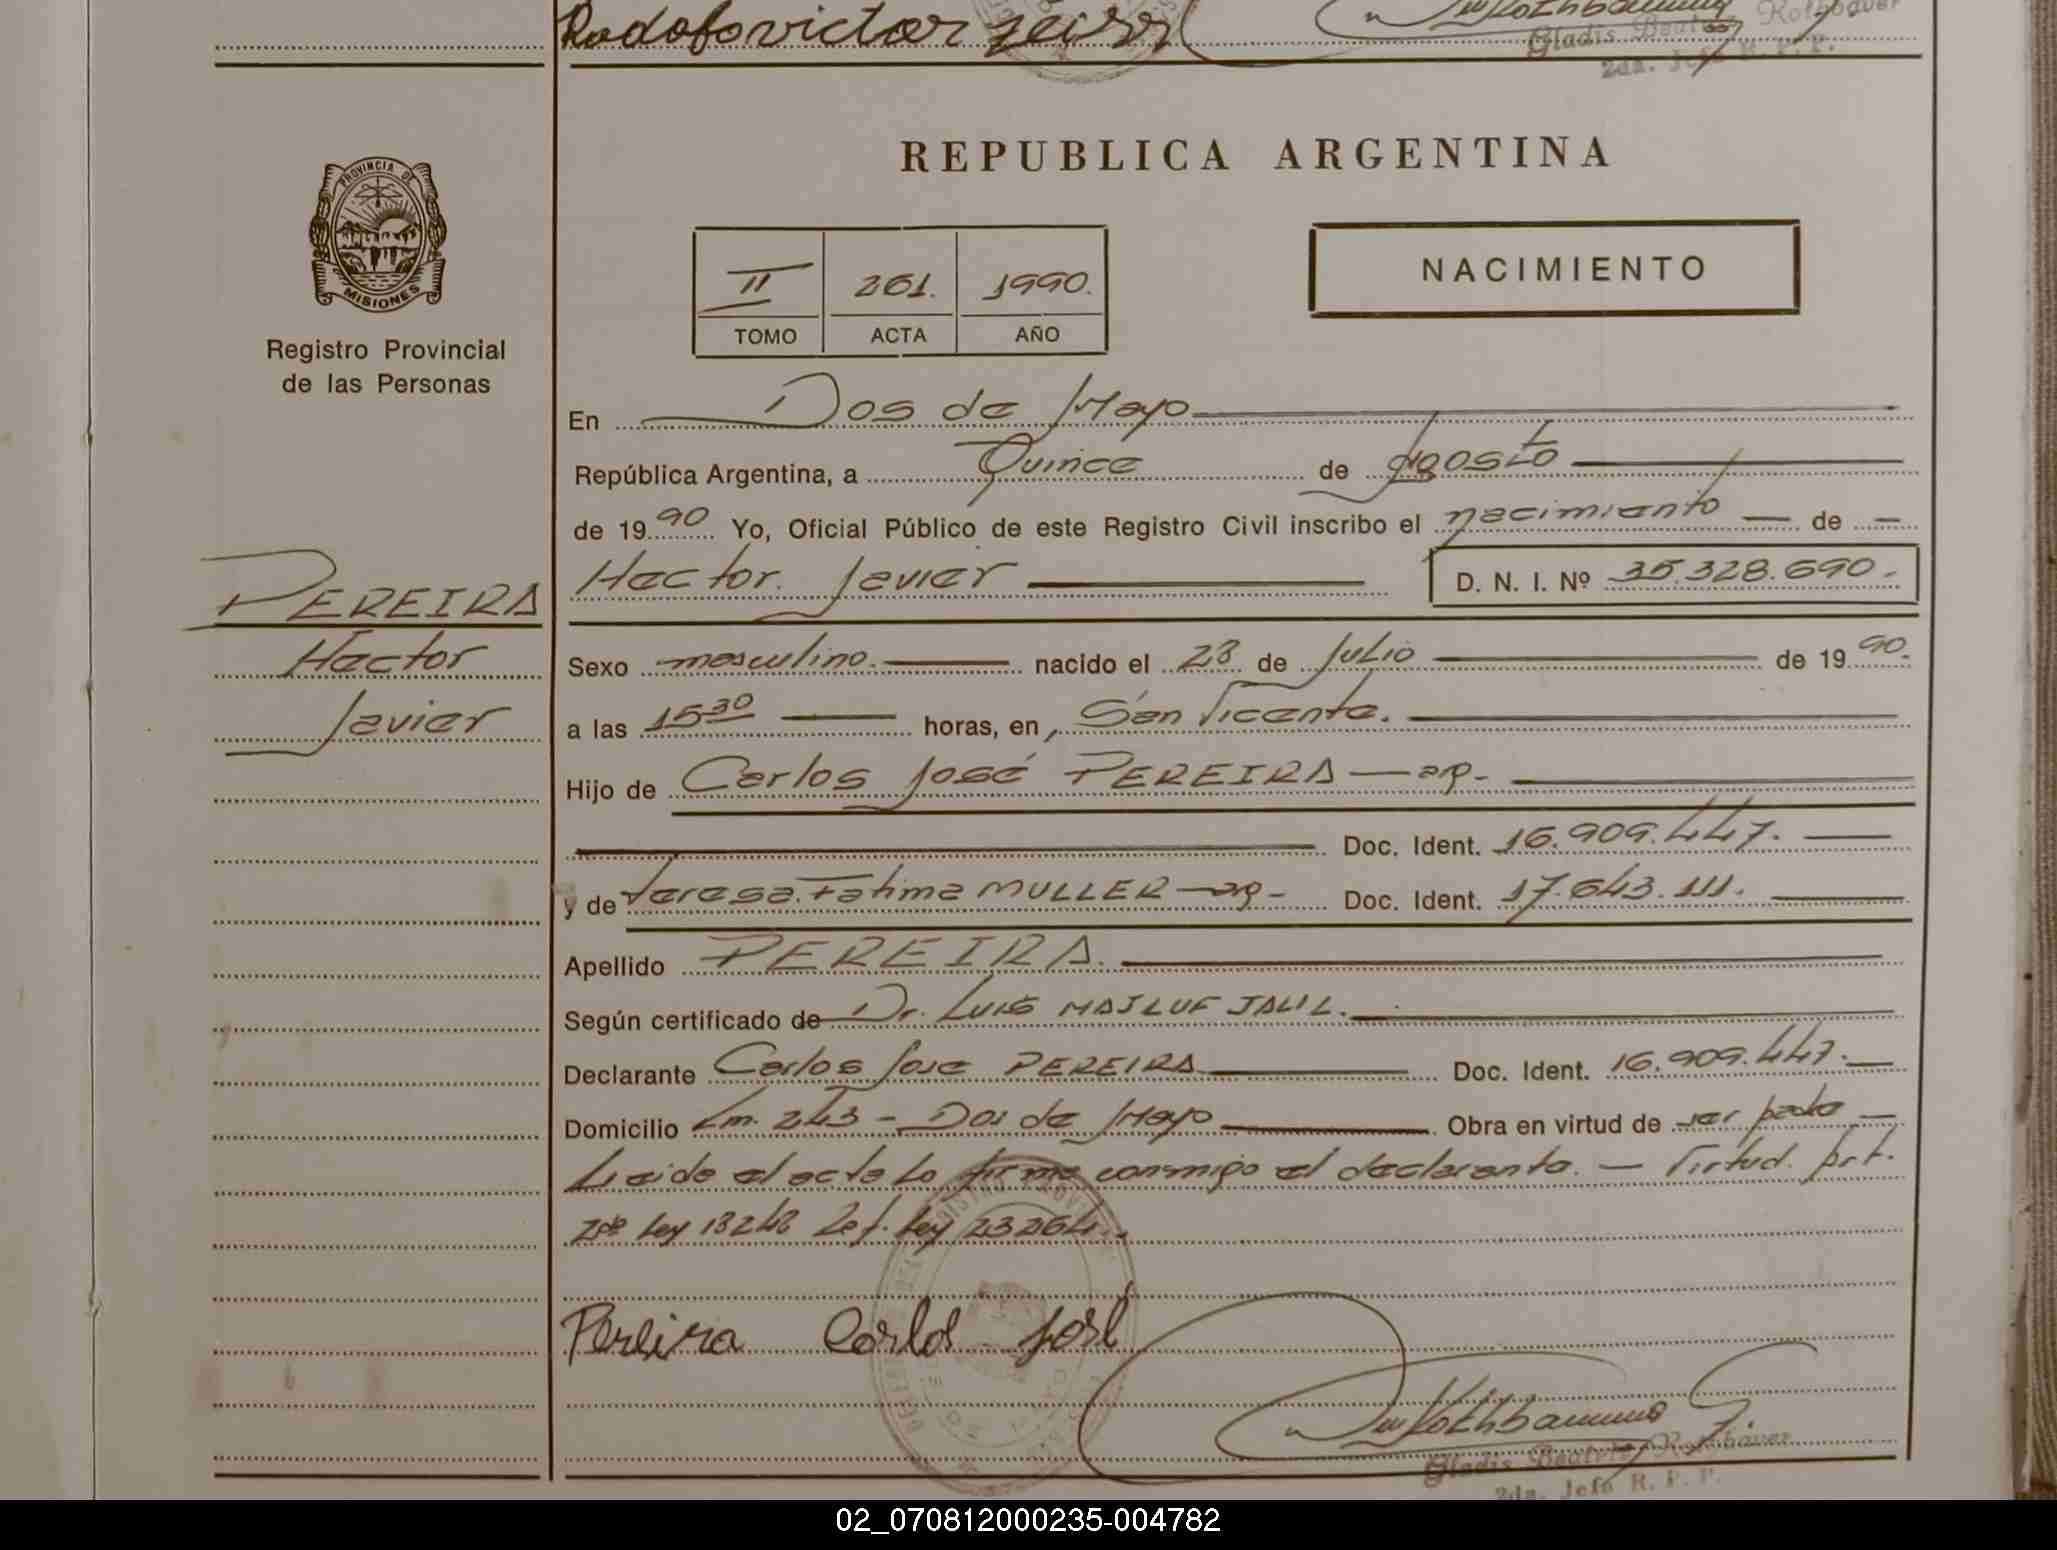 Rodolfo victor
Gladis Beatriz Rothbaver
2da. Jefe R. P. P.
PROVINCIA DE
MISIONES
Registro Provincial
de las Personas
PEREIRA
Hector
Javier
REPUBLICA ARGENTINA
II 261. 1990.
TOMO ACTA AÑO
NACIMIENTO
En Dos de Mayo
República Argentina, a Quince de Agosto
de 1990 Yo, Oficial Público de este Registro Civil inscribo el nacimiento — de —
Hector Javier D. N. I. Nº 35.328.690.-
Sexo masculino. nacido el 23 de Julio de 1990.
a las 15 30 horas, en San Vicente.
Hijo de Carlos José PEREIRA — ap-
Doc. Ident. 16.909.447.
y de Teresa Fatima MULLER — ap- Doc. Ident. 17.643.111.
Apellido PEREIRA.
Según certificado de Dr. Luis MAJLUF JALIL.
Declarante Carlos Jose PEREIRA Doc. Ident. 16.909.447.
Domicilio Km. 243 - Dos de Mayo Obra en virtud de ser padre
Leida el acta lo firma conmigo el declarante. — Virtud. Art.
2do Ley 18248 Ley 23264.-
Pereira Carlos José
Gladis Beatriz Rothbaver
2da. Jefe R. P. P.
02_070812000235-004782